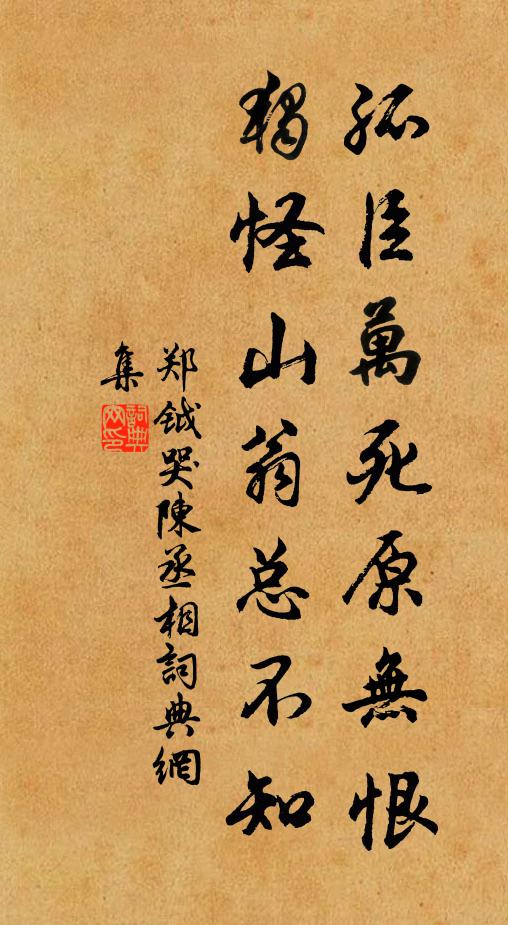 孤臣萬死原無恨
獨怪山翁总不知
郑钺哭陳丞相詞典網
集
詞典網印